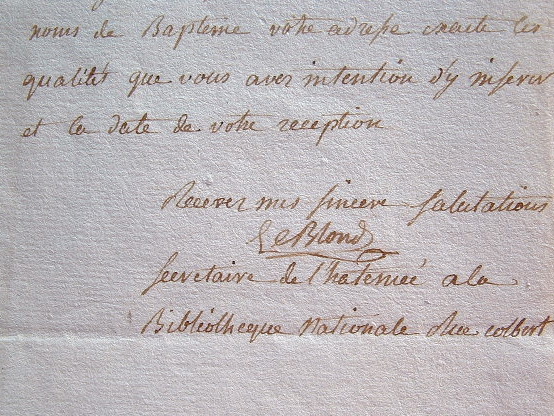 noms de Baptême votre adresse exacte les
qualités que vous avez intention d'y inserer
et la date de votre reception
Recevez mes sincere salutations
LeBlond
Secretaire de l' a la
Bibliotheque Nationale Rue colbert